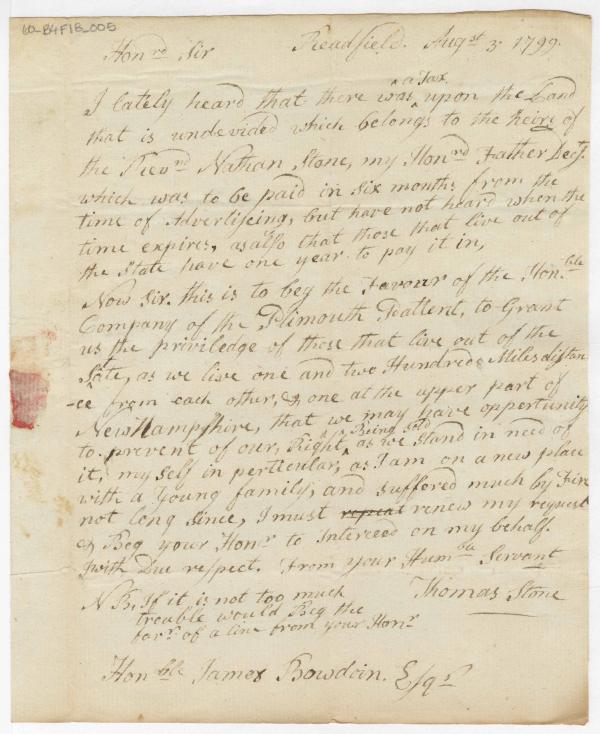 60_B4F18_005
Readfield. Augst 3 1799.
Honrd Sir
I lately heard that there was ^a Tax upon the Land
that is undevided which belongs to the heirs of
the Revnd Nathan Stone, my Honrd Father Decsd.
which was to be paid in six months from the
time of Advertiseing, but have not heard when the
time expires, as also that those that live out of
the State have one year to pay it in,
Now Sir. this is to beg the Favour of the Honble
Company of the Plimouth Pattent, to Grant
us the priviledge of those that live out of the
State, as we live one and two Hundred Miles distan
-ce from each other, & one at the upper part of
New Hampshire, that we may have opportunity
to prevent of our, Right ^Being Sold as we stand in need of
it, my self in perticular, as I am on a new place
with a Young family, and suffered much by Fire
not long since, I must repeat renew my request
& Beg your Honr. to Interceed on my behalf.
with Due respect. From your Humble Servant
Thomas Stone
N B. If it is not too much
trouble would Beg the
favr. of a line from your Honr.
Honble James Bowdoin. Esqr